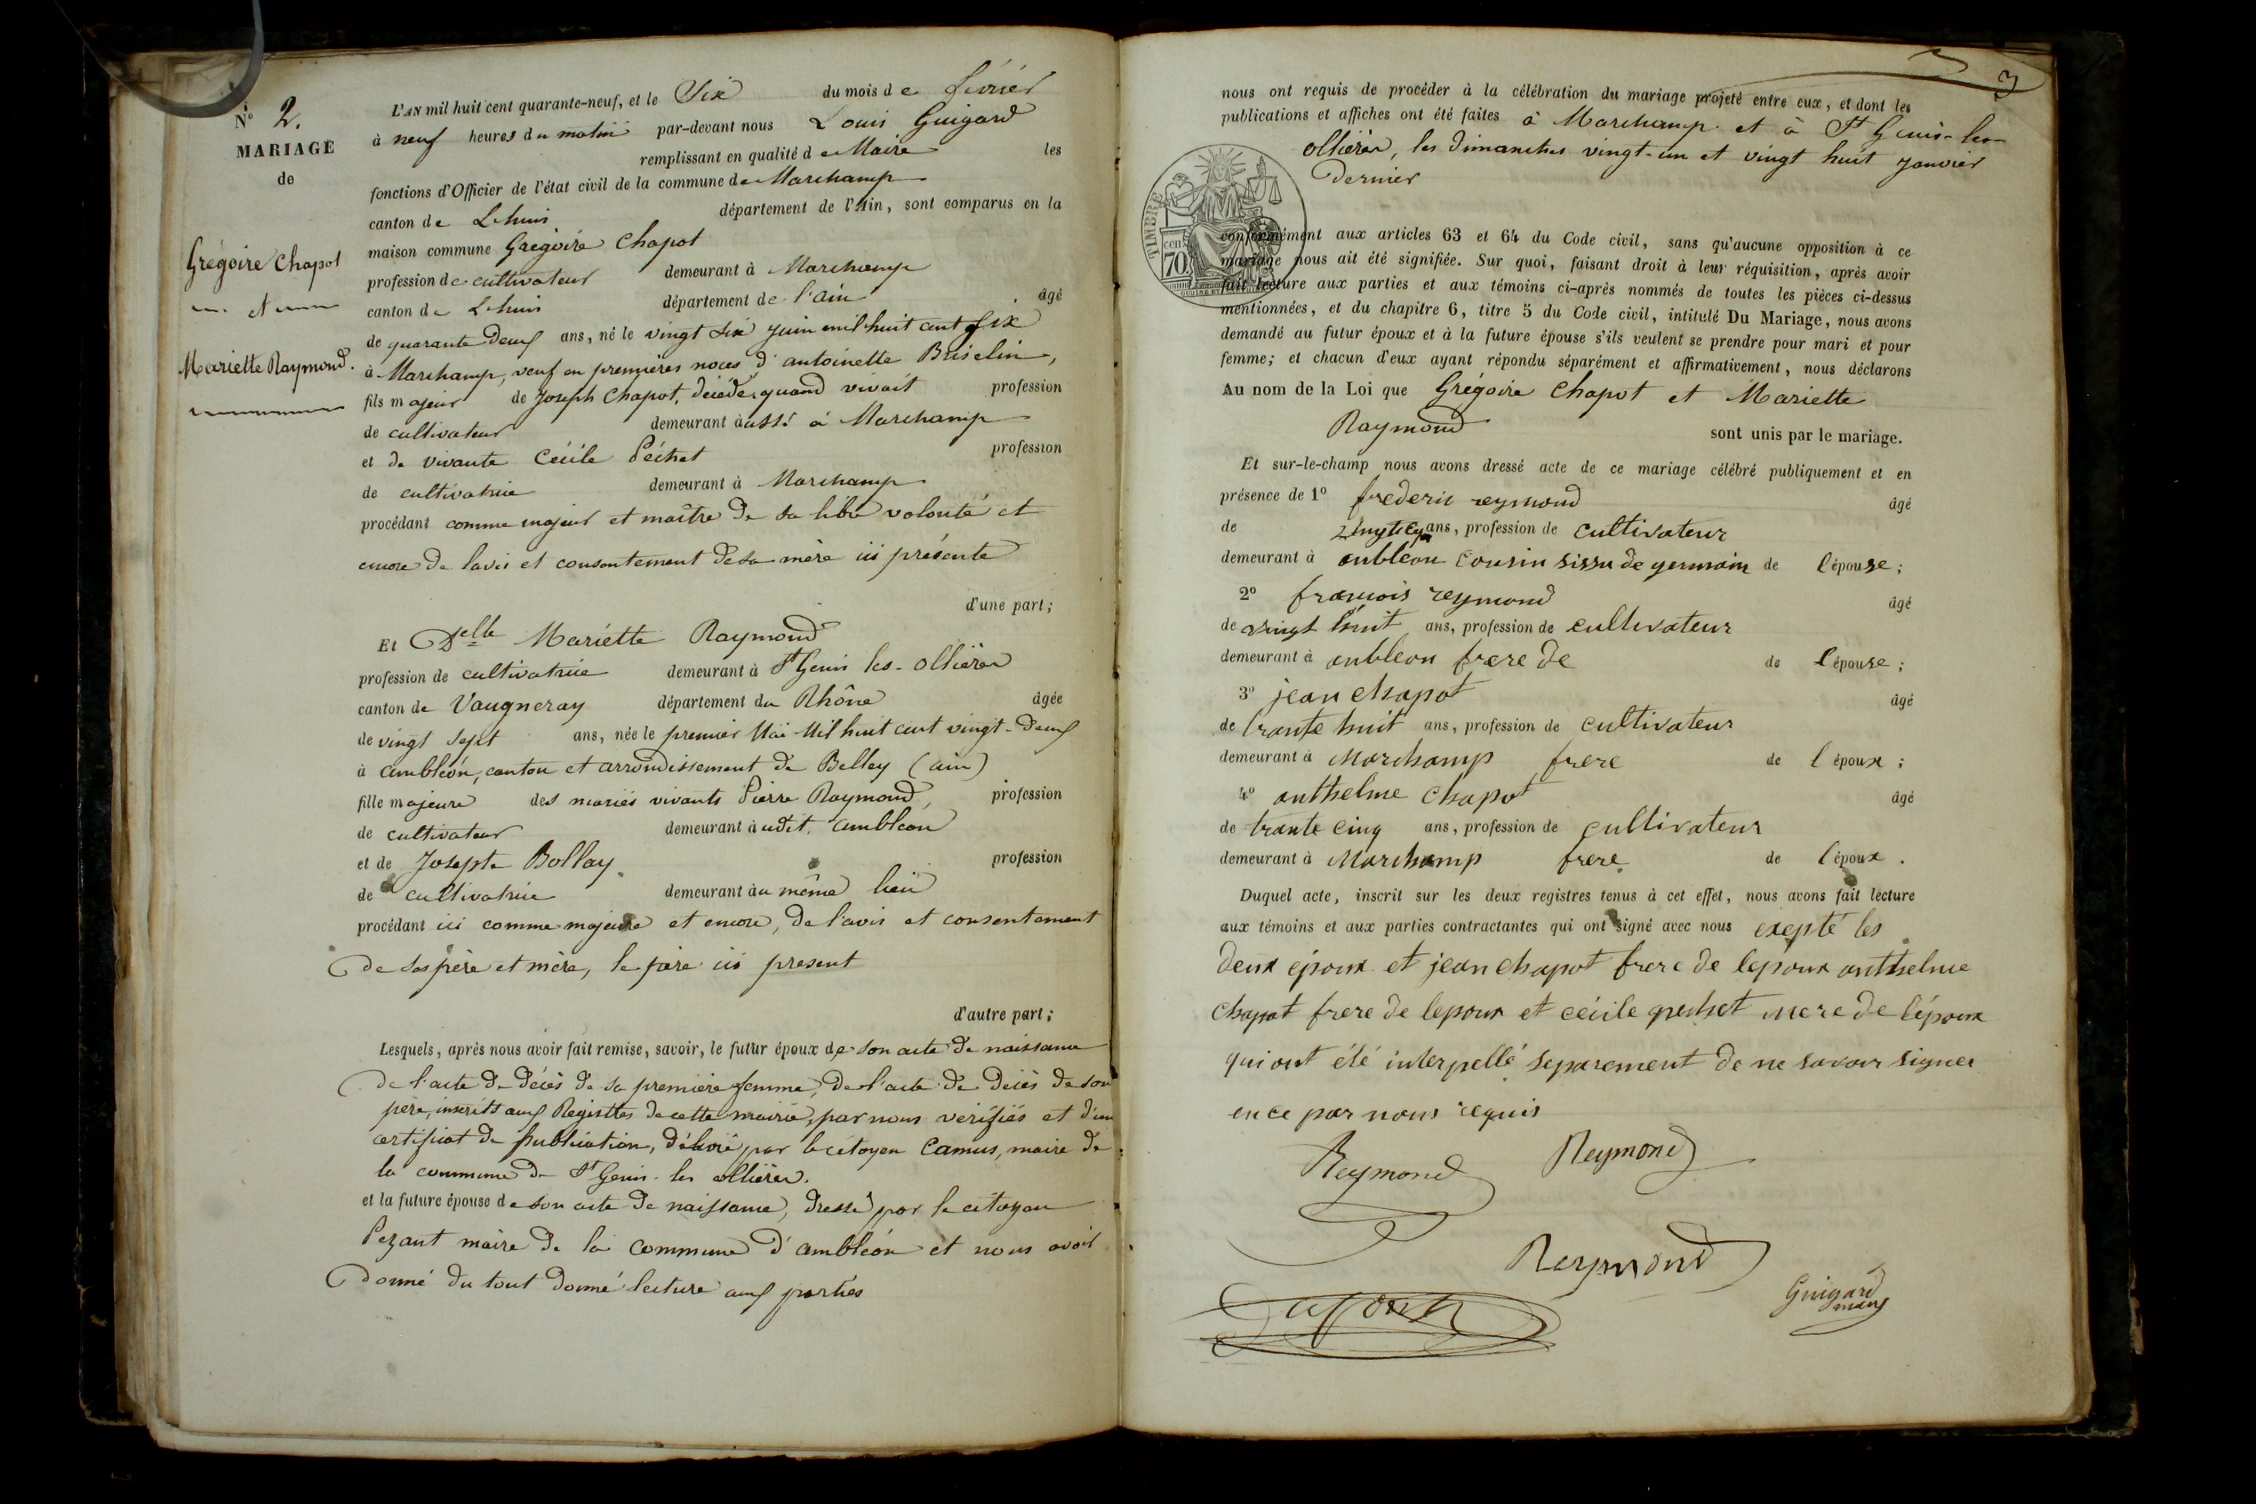 N° 2.
MARIAGE
de
Grégoire Chapot
et
Mariette Raymond.
L'AN mil huit cent quarante-neuf, et le Six du mois de février
à neuf heures du matin par-devant nous Louis Guigard
remplissant en qualité de Maire les
fonctions d'Officier de l'état civil de la commune de Marchamp
canton de Lhuis département de l'Ain, sont comparus en la
maison commune Grégoire Chapot
profession de cultivateur demeurant à Marchamp
canton de Lhuis département de l'ain âgé
de quarante deux ans, né le vingt six juin mil huit cent six
à Marchamp, veuf en premières noces d'antoinette Briselin,
fils majeur de Joseph Chapot, décédé, quand vivait profession
de cultivateur demeurant aussi à Marchamp
et de vivante Cécile Péchet profession
de cultivatrice demeurant à Marchamp
procédant comme majeur et maître de sa libre volonté et
encore de l'avis et consentement de sa mère ici présente
d'une part;
Et Delle Mariette Raymond
profession de cultivatrice demeurant à St Genis les-Ollières
canton de Vaugneray département du Rhône âgée
de vingt sept ans, née le premier Mai Mil huit cent vingt-deux
à ambléon, canton et arrondissement de Belley (ain)
fille majeure des mariés vivants Pierre Raymond, profession
de cultivateur demeurant audit ambléon
et de Josepte Bollay profession
de cultivatrice demeurant au même lieu
procédant ici comme majeure et encore, de l'avis et consentement
de ses père et mère, le père ici present
d'autre part;
Lesquels, après nous avoir fait remise, savoir, le futur époux de son acte de naissance
de l'acte de décès de sa première femme, de l'acte de décès de son
père, inscrits aux Registtes de cette mairie, par nous vérifiés et d'un
certificat de publication, délivré par le citoyen Camus, maire de
la commune de St Genis-les ollières.
et la future épouse de son acte de naissance, dressé par le citoyen
Pezant maire de la commune d'ambléon et nous avoir
donné du tout donné lecture aux parties
3
nous ont requis de procéder à la célébration du mariage projeté entre eux, et dont les
publications et affiches ont été faites à Marchamp et à St Genis-les-
ollières, les dimanches vingt-un et vingt huit janvier
dernier
TIMBRE
cen 70
conformément aux articles 63 et 64 du Code civil, sans qu'aucune opposition à ce
mariage nous ait été signifiée. Sur quoi, faisant droit à leur réquisition, après avoir
fait lecture aux parties et aux témoins ci-après nommés de toutes les pièces ci-dessus
mentionnées, et du chapitre 6, titre 5 du Code civil, intitulé Du Mariage, nous avons
demandé au futur époux et à la future épouse s'ils veulent se prendre pour mari et pour
femme; et chacun d'eux ayant répondu séparément et affirmativement, nous déclarons
Au nom de la Loi que Grégoire Chapot et Mariette
Raymond sont unis par le mariage.
Et sur-le-champ nous avons dressé acte de ce mariage célébré publiquement et en
présence de 1° frederic reymond âgé
de ans, profession de cultivateur
demeurant à anbléon Cousin sissu de germain de l'épouse;
2° francois reymond âgé
de vingt huit ans, profession de cultivateur
demeurant à anbleon frere de de l'épouse;
3° jean chapot âgé
de trante huit ans, profession de cultivateur
demeurant à Marchamp frere de l'époux;
4° anthelme chapot âgé
de trante cinq ans, profession de cultivateur
demeurant à Marchamp frere de l'époux.
Duquel acte, inscrit sur les deux registres tenus à cet effet, nous avons fait lecture
aux témoins et aux parties contractantes qui ont signé avec nous exepté les
deux époux et jean chapot frere de lepoux anthelme
chapot frere de lepoux et cécile pechet mere de l'époux
qui ont été interpellé separement de ne savoir signer
en ce par nous requis
Reymond Reymond
Reymond
Guigard
maire